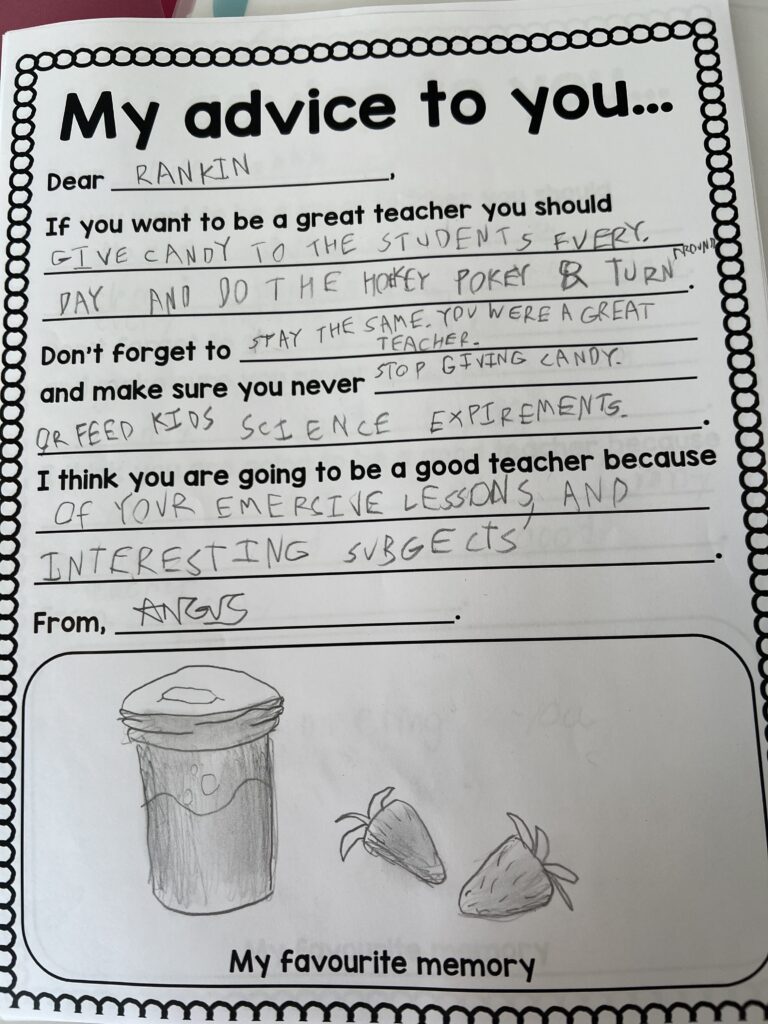 My advice to you...
Dear RANKIN,
If you want to be a great teacher you should
GIVE CANDY TO THE STUDENTS EVERY.
DAY AND DO THE HOKEY POKEY & TURN AROUND.
Don't forget to STAY THE SAME. YOU WERE A GREAT
TEACHER.
and make sure you never STOP GIVING CANDY.
OR FEED KIDS SCIENCE EXPIREMENTS.
I think you are going to be a good teacher because
OF YOUR EMERSIVE LESSONS, AND
INTERESTING SUBGECTS.
From, ANGUS.
My favourite memory